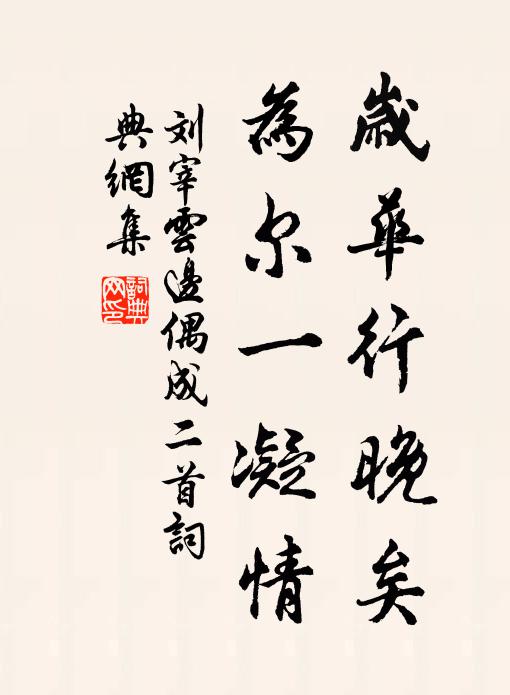 歲華行晚矣
為尔一凝情
刘宰雲邊偶成二首詞
典網集
詞典網印